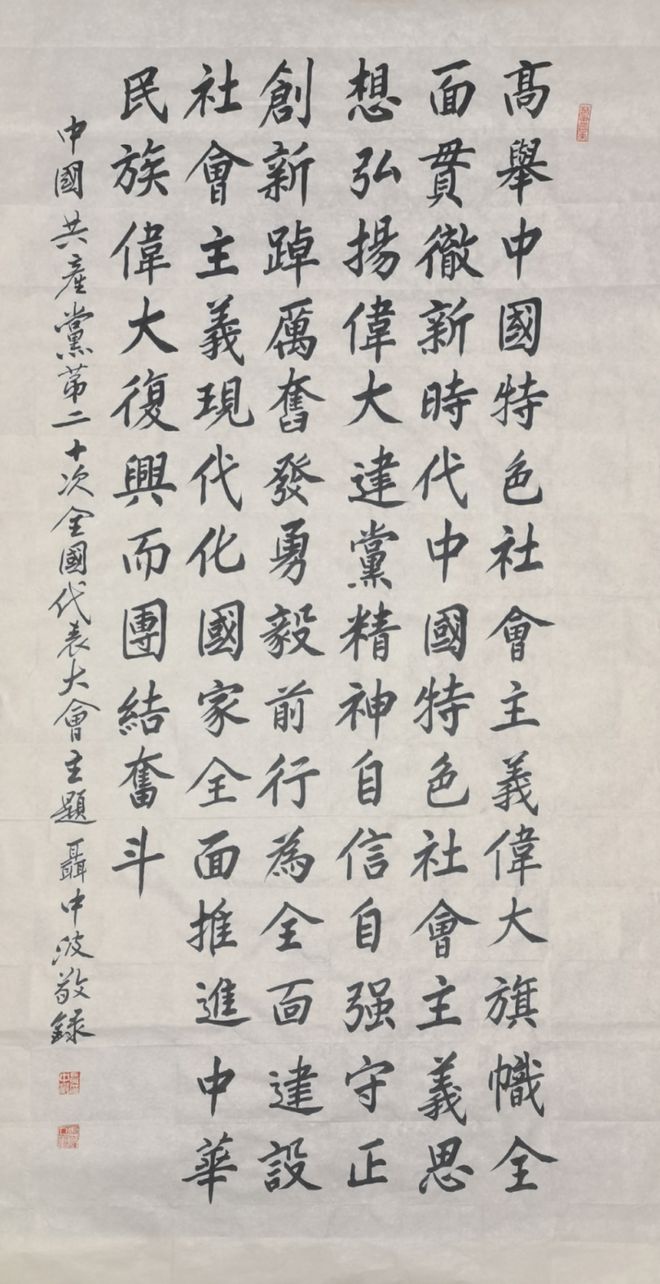 高舉中國特色社會主義偉大旗幟全
面貫徹新時代中國特色社會主義思
想弘揚偉大建黨精神自信自强守正
創新踔厲奮發勇毅前行為全面建設
社會主義現代化國家全面推進中華
民族偉大復興而團結奮斗
中國共產黨第二十次全國代表大會主題聶中波敬錄